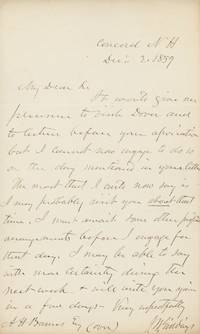 Concord N H
Dec. 2. 1859
My Dear Sir
It would give me
pleasure to visit Dover and
to lecture before your association
but I cannot now engage to do so
on the day mentioned in your letter
The most that I can now say is
I may probably visit you about that
time. I must await some other
arrangements before I engage for
that day. I may be able to say
with more certainty during the
next week & will write you again
in a few days. Very respectfully
(over)